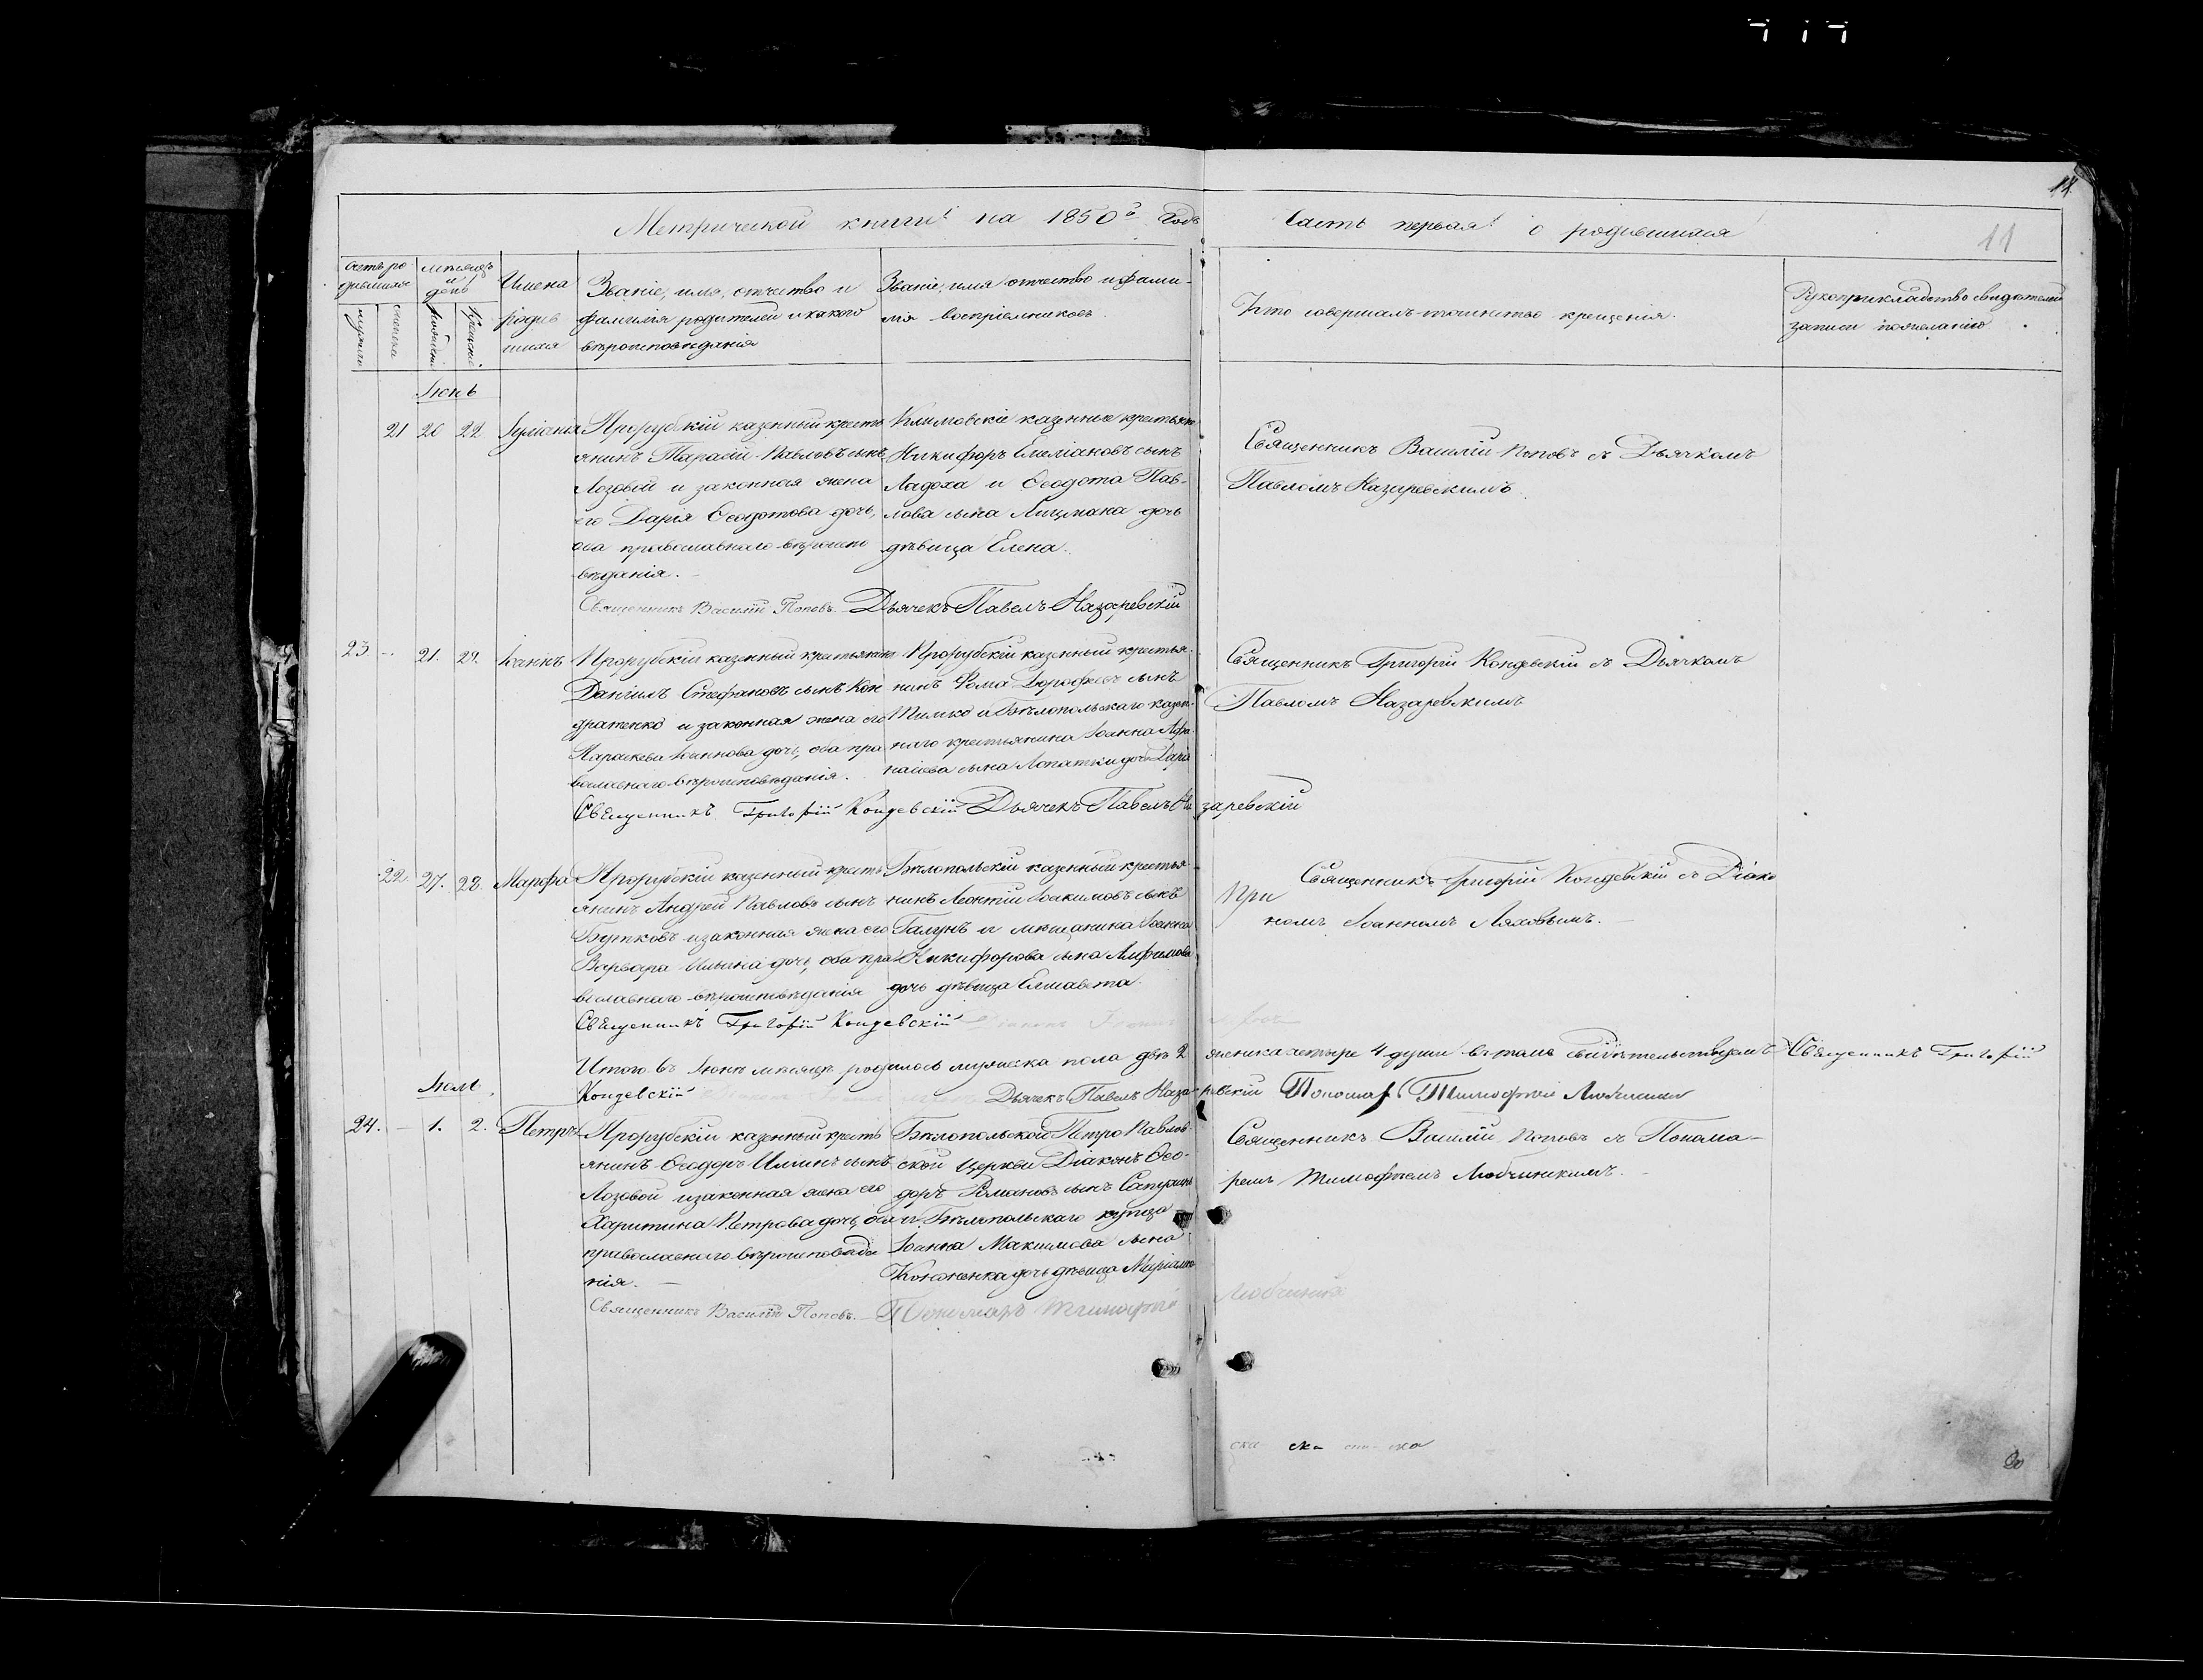 11
Метрической книги на 1850й Годъ Часть первая о родившихся
11
Счетъ ро- дившихся
Мѣсяцъ и день
Имена родив шихся
Званіе, имя, отчество и фамилія родителей и какого вѣроисповѣданія
Званіе, имя отчество и фами- лія воспріемниковъ.
Кто совершалъ таинство крещенія.
Рукоприкладство свидѣтелей записи по желанію.
мужеска
женска
Рожденія
Крещенія
Іюнь
21 20 22 Іуліанія
Прорубскій казенный кресть
янинъ Тарасій Павловъ сынъ
Лозовой и законная жена
его Дарія Ѳеодотова дочь,
оба православнаго вѣроиспо
вѣданія.
Климовскіе казенные крестьян
Никифоръ Емеліановъ сынъ
Ладоха и Ѳеодота Пав-
лова сына дочь
дѣвица Елена.
Священникъ Василій Поповъ съ Дьячкомъ
Павломъ Назаревскимъ.
Священникъ Василій Поповъ. Дьячекъ Павелъ Назаревскій
23 - 21. 29. Іоаннъ
Прорубскій казенный крестьянинъ
Даніилъ Стефановъ сынъ Кон
дратенко и законная жена его
Параскева Іоаннова дочь, оба пра
вославнаго вѣроисповѣданія.
Прорубскій казенный крестья-
нинъ Фома Дорофеевъ сынъ
Тимко и Бѣлопольскаго казен-
наго крестьянина Іоанна Афа-
насіева сына Лопатки дочь Дарія
Священникъ Григорій Кондевскій съ Дьячкомъ
Павломъ Назаревскимъ
Священникъ Григорій Кондевскій Дьячекъ Павелъ Назаревскій
22. 27. 28. Марфа
Прорубскій казенный кресть
янинъ Андрей Павловъ сынъ
Бутковъ и законная жена его
Варвара Ильина дочь, оба пра
вославнаго вѣроисповѣданія
Бѣлопольскій казенный крестья-
нинъ Леонтій Іоакимовъ сынъ
Галунъ и мѣщанина Іоанна
Никифорова сына Алфимова
дочь дѣвица Елисавета.
При
Священникъ Григорій Кондевскій съ Діако
номъ Іоанномъ Ляховымъ.
Священникъ Григорій Кондевскій
Итого въ Іюнѣ мѣсяцѣ родилось мужеска пола два 2 женска четыре 4 души въ томъ свидѣтельствуемъ Священникъ Григорій
Кондевскій Дьячекъ Павелъ Назаревскій Пономарь Тимофѣй
Іюль
24. - 1. 2. Петръ
Прорубскій казенный кресть
янинъ Ѳеодоръ Ильинъ сынъ
Лозовой и законная жена его
Харитина Петрова дочь, оба
православнаго вѣроисповѣда
нія.
Бѣлопольской Петро Павлов-
ской Церкви Діаконъ Ѳео-
доръ Романовъ сынъ
и Бѣлопольскаго купца
Іоанна Максимова сына
дочь дѣвица
Священникъ Василій Поповъ съ Понома-
ремъ Тимофѣемъ
Священникъ Василій Поповъ. Пономарь Тимофѣй